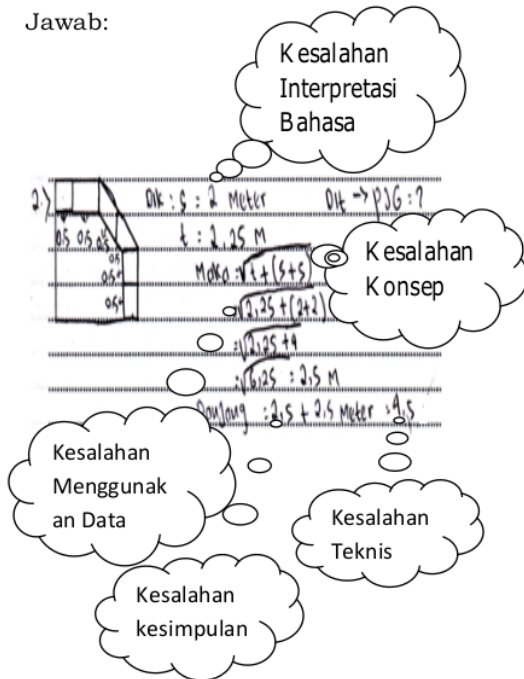 Jawab:
Kesalahan
Interpretasi
Bahasa
2.) Dik : s = 2 Meter Dit → PJG : ?
0,5 0,5 0,5
t = 2,25 M
0,5
0,5
0,5
Maka = √t + (s+s)
= √2,25 + (2+2)
= √2,25 + 4
= √6,25 = 2,5 M
Panjang = 2,5 + 2,5 Meter = 4,5
Kesalahan
Konsep
Kesalahan
Menggunak
an Data
Kesalahan
Teknis
Kesalahan
kesimpulan